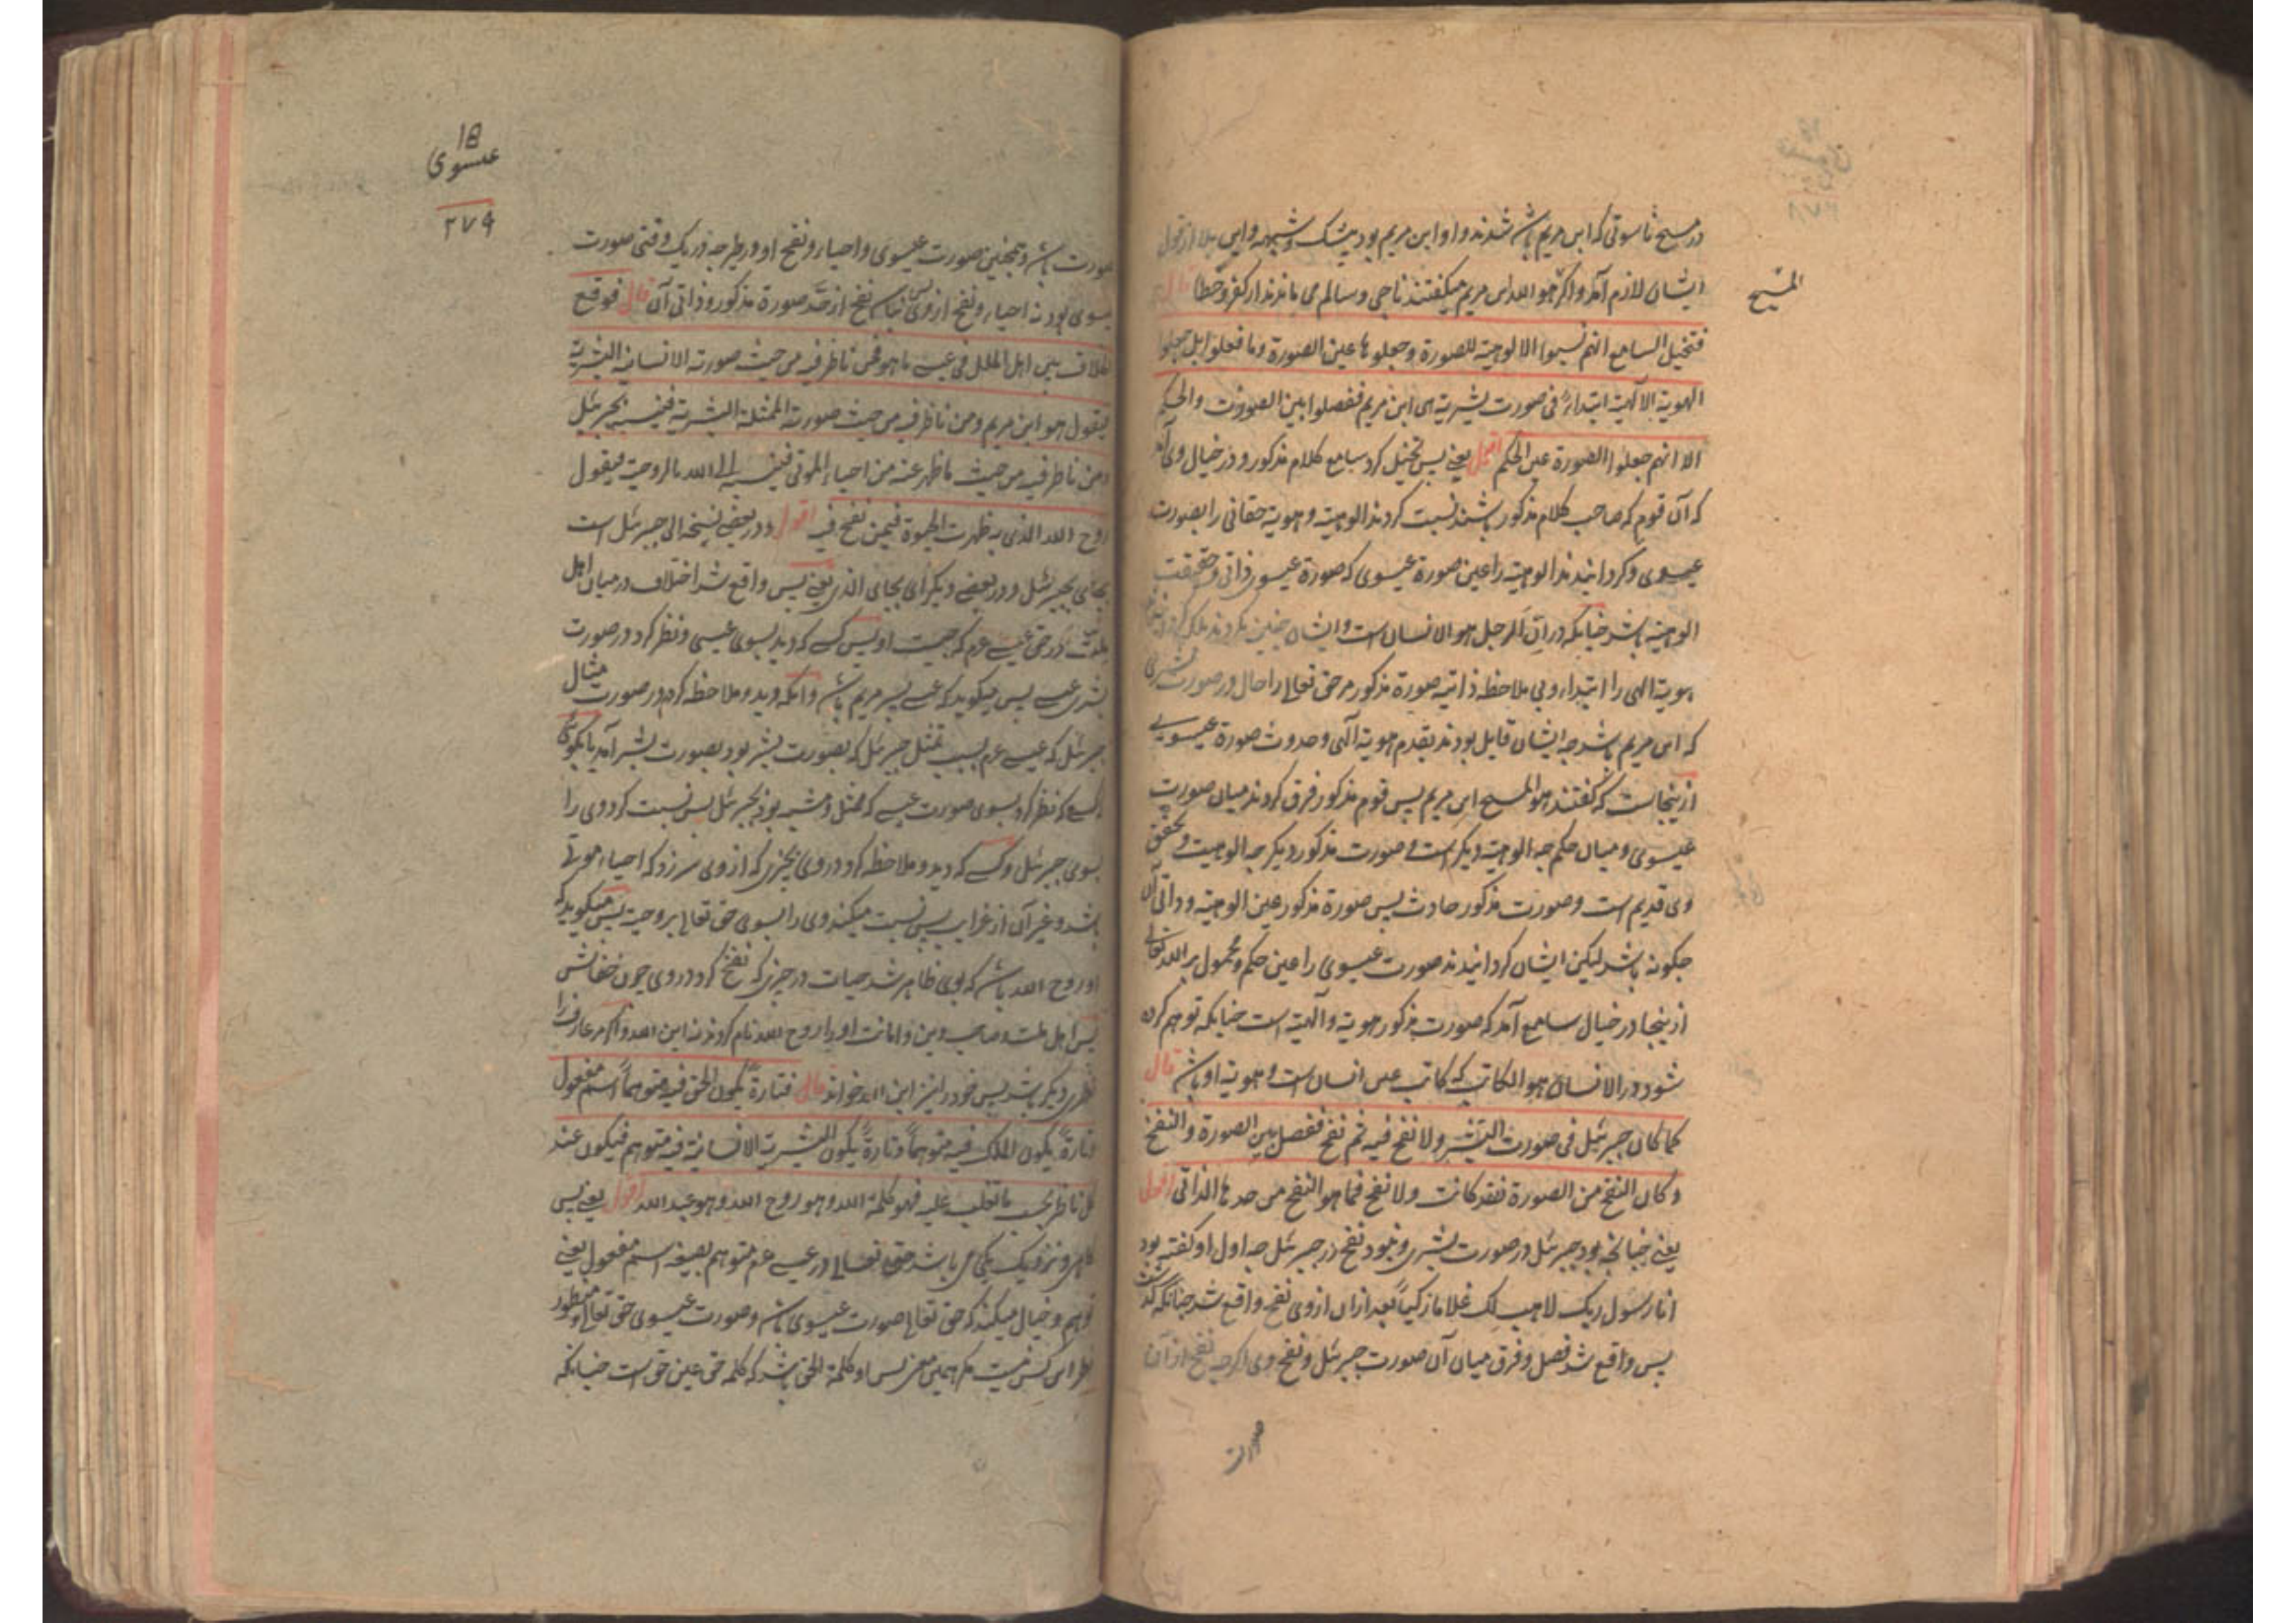 در مسیح ناسوتی که ابن مریم باشد شدند و او ابن مریم بود بیشک و شبهه و این بلا از قول
ایشان لازم آمد و اگر هو الله ابن مریم میگفتند ناجی و سالم می ماندند از کفر و خطا قال
المسیح
فتخیل السامع انهم نسبوا الالوهیة للصورة وجعلوها عین الصورة وما فعلوا بل جعلوا
الهویة الالهیة ابتداءً فی صورت بشریة هی ابن مریم ففصلوا بین الصورت والحکم
الا انهم جعلوا الصورة عین الحکم اقول یعنی پس تخیل کرد سامع کلام مذکور و در خیال وی آمد
که آن قوم که صاحب کلام مذکور باشند نسبت کردند الوهیته و هویة حقانی را بصورت
عیسوی و کردانیدند الوهیته را عین صورة عیسوی که صورة عیسوی ذاتی و حقیقت
الوهیته باشد چنانکه در ان الرجل هو الانسان است و ایشان چنین نکردند بلکه
هویة الهی را ابتداء و بی ملاحظه ذاتیه صورة مذکور مر حق تعالی را حال در صورت بشری
که ابن مریم باشد چه ایشان قایل بودند بقدم هویة الهی و حدوث صورة عیسویی
ازینجاست که گفتند هو المسیح ابن مریم پس قوم مذکور فرق کردند میان صورت
عیسوی و میان حکم چه الوهیته دیگر است و صورت مذکور دیگر چه الوهیت و تحقق
وی قدیم است و صورت مذکور حادث پس صورة مذکور عین الوهیته و ذاتی آن
چگونه باشد لیکن ایشان کردانیدند صورت عیسوی را عین حکم و محمول بر الله تعالی
ازینجا در خیال سامع آمد که صورت مذکور هویة و الهیته است چنانکه توهم کرده
شود در الانسان هو الکاتب که کاتب عین انسان است و هویة او باشد قال
کما کان جبرئیل فی صورت البشر ولا نفخ فیه ثم نفخ ففصل بین الصورة والنفخ
وکان النفخ من الصورة فقد کانت ولا نفخ فما هو النفخ من حدها الذاتی اقول
یعنی چنانچه بود جبرئیل در صورت بشری و نبود نفخ در جبرئیل چه اول او گفته بود
انا رسول ربک لاهب لک غلاما زکیاً بعد ازان از وی نفخ واقع شد چنانکه گذشت
پس واقع شد فصل و فرق میان آن صورت جبرئیل و نفخ وی اگرچه نفخ از آن
صورت
18
عیسوی
۲۷۹
صورت باشد و همچنین صورت عیسوی و احیاء و نفخ او در طیر چه در یک وقتی صورت
عیسوی بود نه احیاء و نفخ از وی پس نباشد نفخ از حد صورة مذکور و ذاتی آن قال فوقع
الخلاف بین اهل الملل فی عیسی ما هو فمن ناظر فیه من حیث صورته الانسانیة البشریة
فیقول هو ابن مریم ومن ناظر فیه من حیث صورته الممثلة البشریة فینسبه بجبرئیل
ومن ناظر فیه من حیث ما ظهر عنه من احیاء الموتی فینسبه الی الله بالروحیة فیقول
روح الله الذی به ظهرت الحیوة فیمن نفخ فیه اقول و در بعضی نسخه الی جبرئیل است
بجای بجبرئیل و در بعضی دیگر ای بجای الذی یعنی پس واقع شد اختلاف در میان اهل
ملت در حق عیسی عم که چیست او پس کسی که دید بسوی عیسی و نظر کرد در صورت
بشری عیسی پس میگوید که عیسی پسر مریم باشد و آنکه دید و ملاحظه کرد در صورت مثال
جبرئیل که عیسی عم بسبب تمثل جبرئیل که بصورت بشر بود بصورت بشر آمد یا بگوئی
کسی که نظر کرد بسوی صورت عیسی که ممثل و مشبه بود بجبرئیل پس نسبت کرد وی را
بسوی جبرئیل و کسی که دید و ملاحظه کرد در وی بچیزی که از وی سر زد که احیاء موتی
باشد و غیر آن از غرایب پس نسبت میکند وی را بسوی حق تعالی بروحیت پس میگوید که
او روح الله باشد که بوی ظاهر شد حیات در چیزی که نفخ کرد در وی چون خفاش
پس اهل ملت و صاحب دین و امانت او را روح الله نام کردند نه ابن الله و اگر مر عارف را
نظری دیگر باشد پس خود را نیز ابن الله خواند قال فتارةً یکون الحق فیه متوهماً اسم مفعول
وتارةً یکون الملک فیه متوهماً وتارةً یکون البشریة الانسانیة فیه متوهم فیکون عند
کل ناظر بحسب ما تغلب علیه فهو کلمة الله وهو روح الله وهو عبد الله اقول یعنی پس
گاهی و نزدیک یکی می باشد حق تعالی در عیسی عم متوهم بصیغه اسم مفعول یعنی
توهم و خیال میکند که حق تعالی صورت عیسوی باشد و صورت عیسوی حق تعالی و منظور
نظر آن کس نیست مگر همین معنی پس او کلمة الحق باشد که کلمه حق عین حق است چنانکه